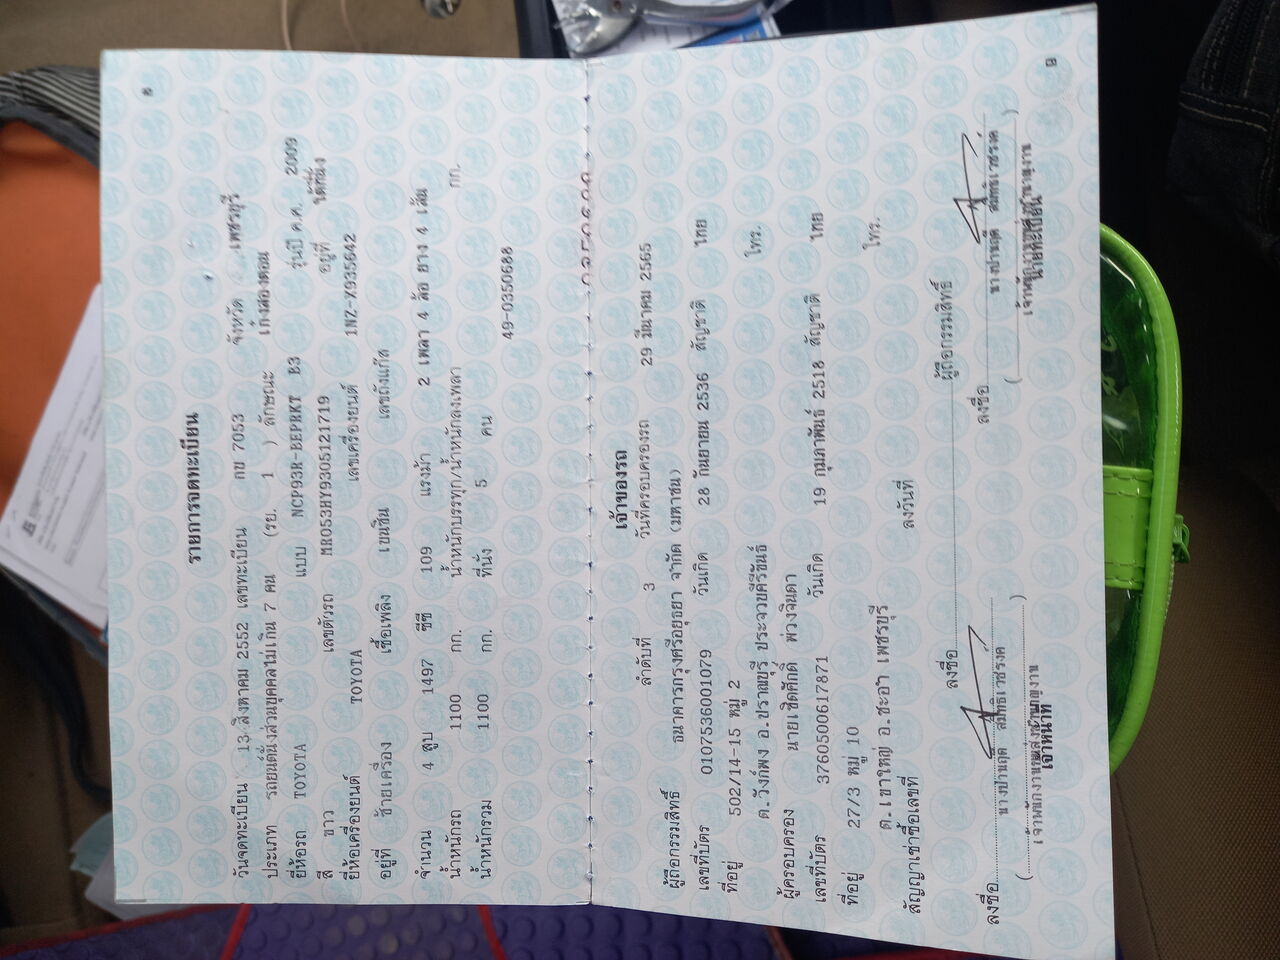 ๕
รายการจดทะเบียน
วันจดทะเบียน 13 สิงหาคม 2552 เลขทะเบียน กข 7053 จังหวัด เพชรบุรี
ประเภท รถยนต์นั่งส่วนบุคคลไม่เกิน 7 คน (รย. 1 ) ลักษณะ เก๋งสองตอน
ยี่ห้อรถ TOYOTA แบบ NCP93R-BEPRKT B3 รุ่นปี ค.ศ. 2009
สี ขาว เลขตัวรถ MR053HY9305121719 อยู่ที่
ยี่ห้อเครื่องยนต์ TOYOTA เลขเครื่องยนต์ 1NZ-X935642
อยู่ที่ ซ้ายเครื่อง เชื้อเพลิง เบนซิน เลขถังแก๊ส
จำนวน 4 สูบ 1497 ซีซี 109 แรงม้า 2 เพลา 4 ล้อ ยาง 4 เส้น
น้ำหนักรถ 1100 กก. น้ำหนักบรรทุก/น้ำหนักลงเพลา กก.
น้ำหนักรวม 1100 กก. ที่นั่ง 5 คน
49-0350688
เจ้าของรถ
ลำดับที่ 3 วันที่ครอบครองรถ 29 มีนาคม 2565
ผู้ถือกรรมสิทธิ์ ธนาคารกรุงศรีอยุธยา จำกัด (มหาชน)
เลขที่บัตร 0107536001079 วันเกิด 28 กันยายน 2536 สัญชาติ ไทย
ที่อยู่ 502/14-15 หมู่ 2 โทร.
ต.วังก์พง อ.ปราณบุรี ประจวบคีรีขันธ์
ผู้ครอบครอง นายเชิดศักดิ์ พ่วงจินดา
เลขที่บัตร 3760500617871 วันเกิด 19 กุมภาพันธ์ 2518 สัญชาติ ไทย
ที่อยู่ 27/3 หมู่ 10 โทร.
ต.เขาใหญ่ อ.ชะอำ เพชรบุรี
สัญญาเช่าซื้อเลขที่ ลงวันที่
ลงชื่อ ผู้ถือกรรมสิทธิ์
ลงชื่อ ลงชื่อ
เจ้าหน้าที่ นายทะเบียน